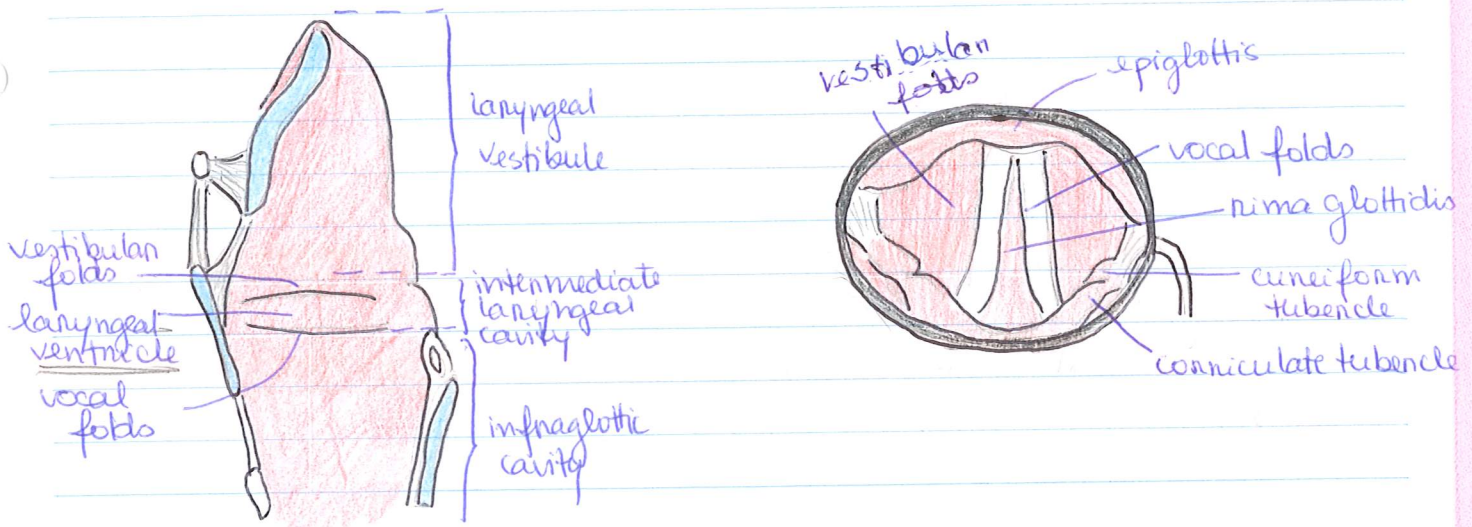 laryngeal
vestibule
vestibular
folds
laryngeal
ventricle
vocal
folds
intermediate
laryngeal
cavity
infraglottic
cavity
vestibular
folds
epiglottis
vocal folds
rima glottidis
cuneiform
tubercle
corniculate tubercle